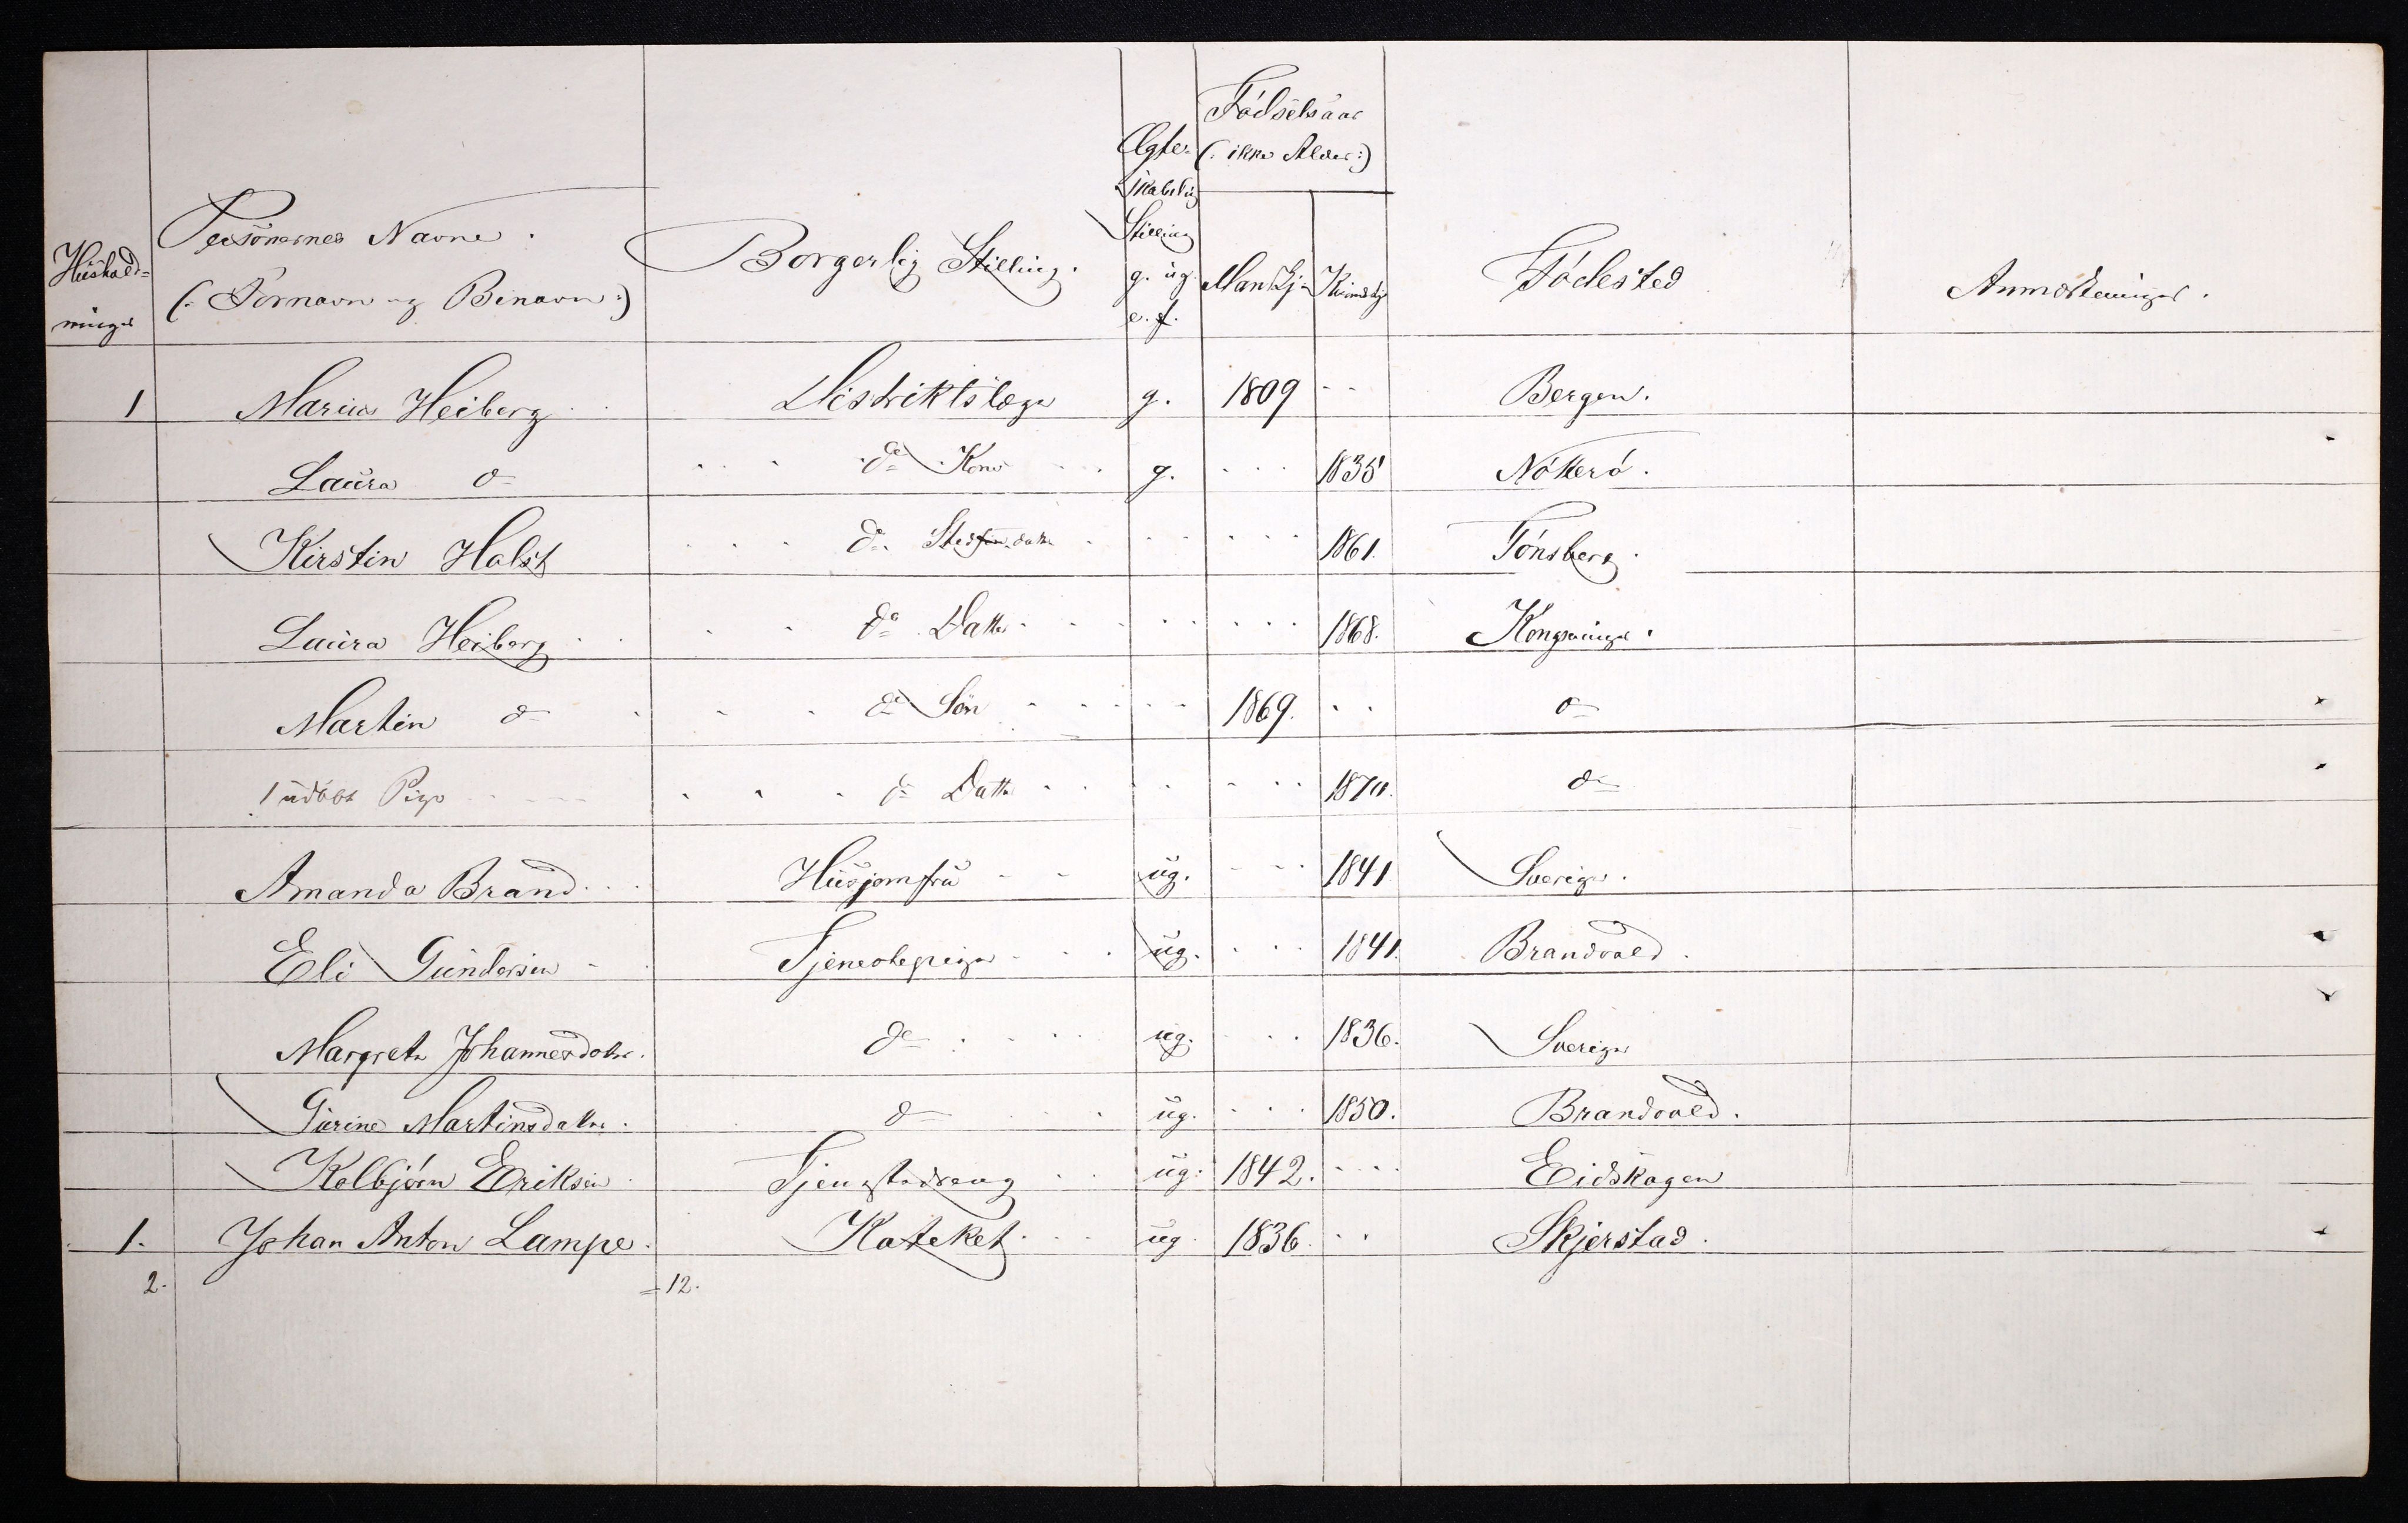 Fødselsaar
(: ikke Alder :)
Ægte-
skabelig
Stilling
g. ug.
e. f.
Hushold-
ninger
Personernes Navne.
(: Fornavn og Binavn :)
Borgerlig Stilling.
Mankj. Kvindekj.
Fødested
Anmærkninger.
1 Marius Heiberg Distriktslæge g. 1809 Bergen.
Laura do do Kone g. 1835 Nøtterø.
Kirstin Holst do Stedfa. datter 1861. Tønsberg.
Laura Heiberg do Datter 1868. Kongsvinger.
Martin do do Søn 1869. do
1 udøbt Pige do Datter 1870. do
Amanda Brand Husjomfru ug. 1841 Sverige.
Eli Gundersen Tjenestepige ug. 1841. Brandvold.
Margrete Johannesdotter. do ug. 1836. Sverige
Gurine Martinsdatter. do ug. 1850. Brandvold.
Kolbjørn Eriksen Tjenestedreng ug. 1842. Eidskogen
1. Johan Anton Lampe. Kateket ug. 1836. Skjerstad.
2. =12.